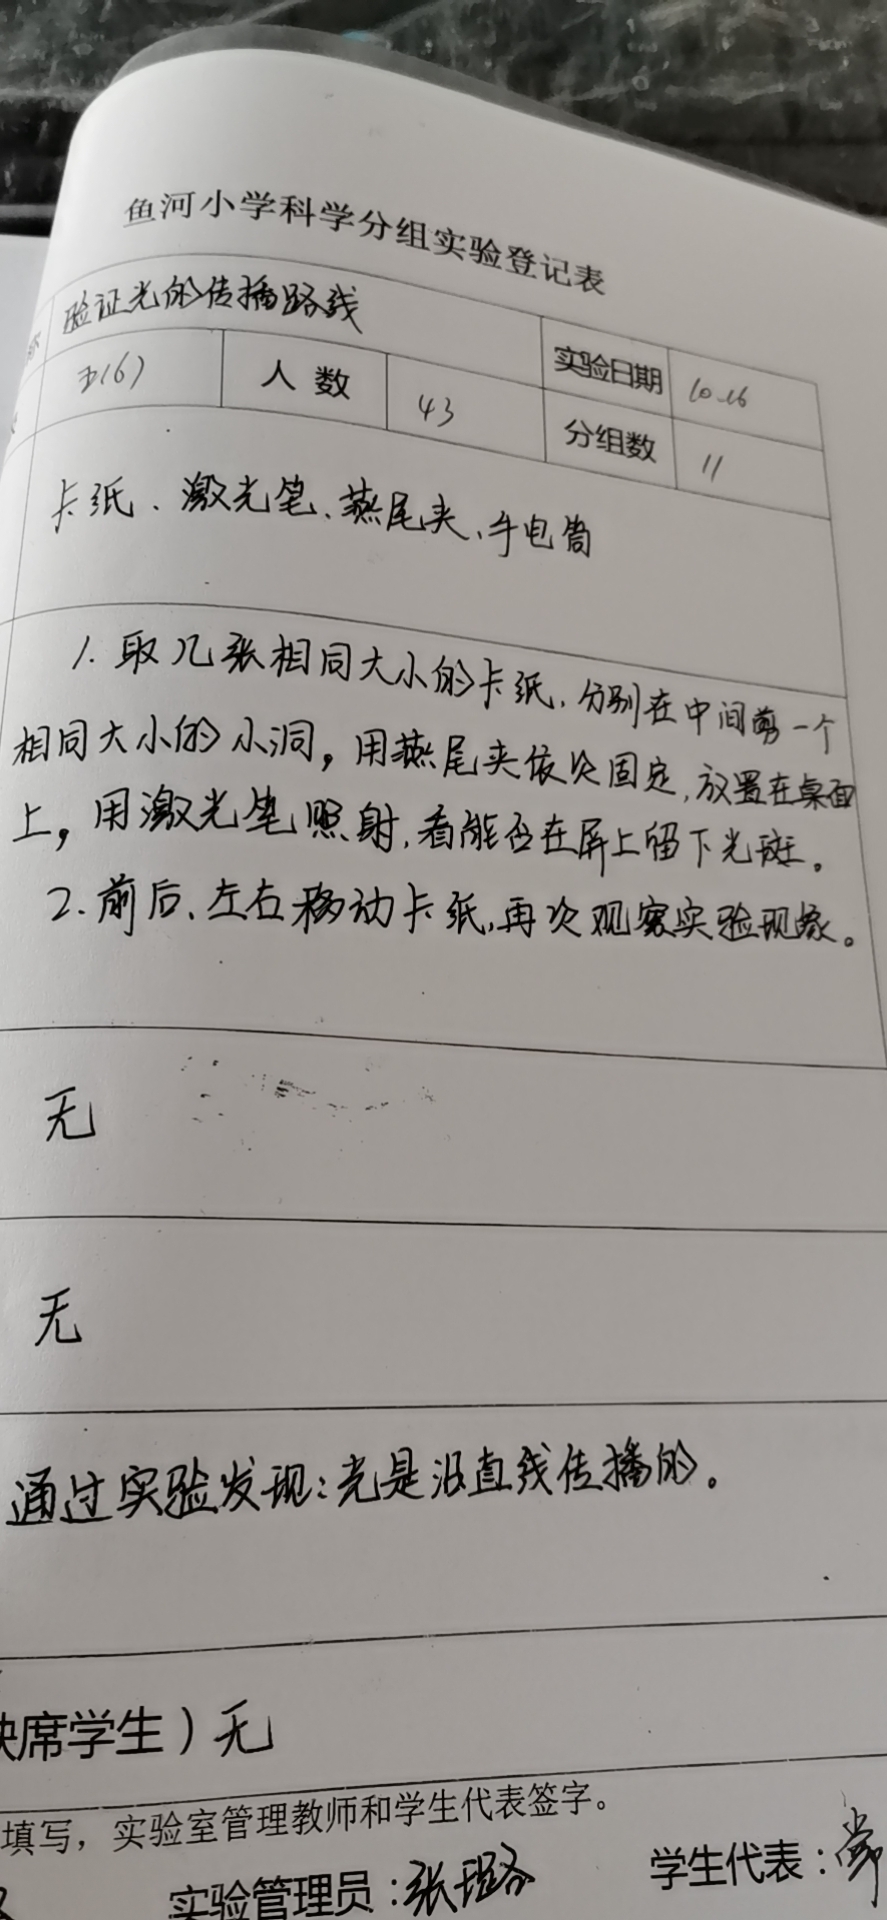 鱼河小学科学分组实验登记表
验证光的传播路线
实验日期 10.16
五(6) 人数 43
分组数 11
卡纸、激光笔、燕尾夹、手电筒
1. 取几张相同大小的卡纸,分别在中间剪一个
相同大小的小洞,用燕尾夹依次固定,放置在桌面
上,用激光笔照射,看能否在屏上留下光斑。
2. 前后、左右移动卡纸,再次观察实验现象。
无
无
通过实验发现:光是沿直线传播的。
缺席学生)无
填写,实验室管理教师和学生代表签字。
实验管理员:张璐 学生代表:常